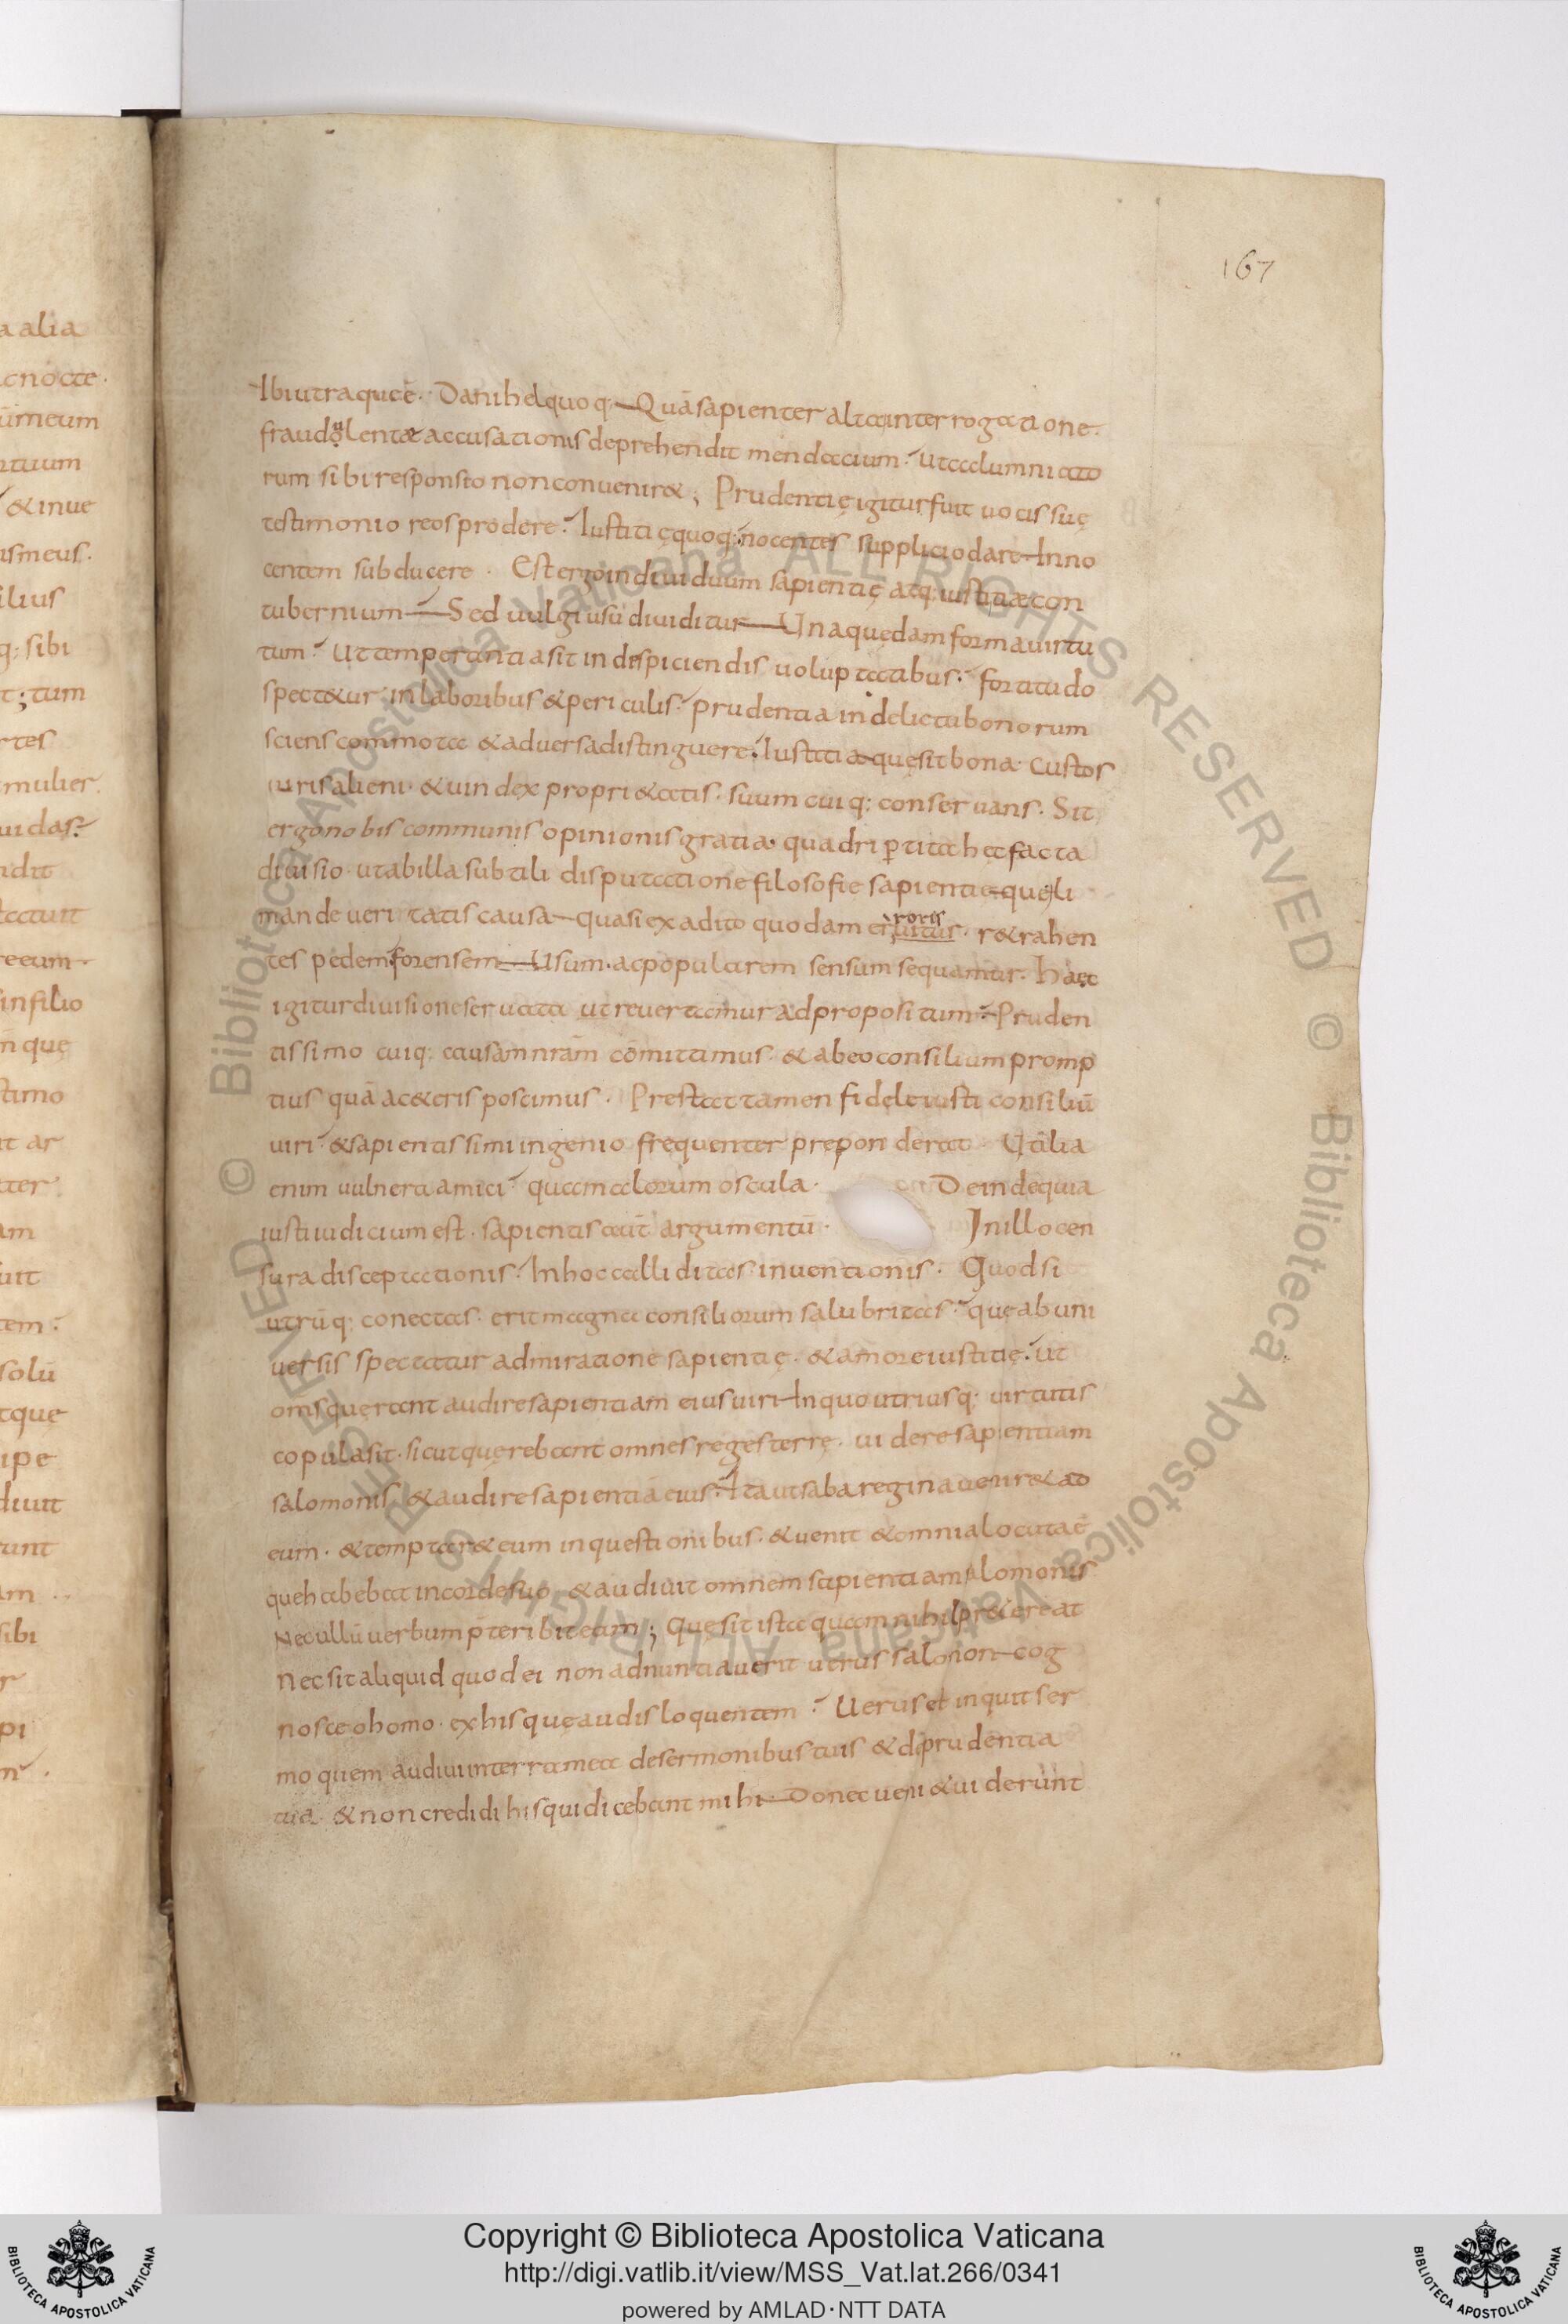 167
Ibi utraquę ē · Danihel quoq; Quā sapienter alta interrogatione ·
fraudolentæ accusationis deprehendit mendacium · ut calumniato
rum sibi responsio non convenir& ; Prudentię igitur fuit vocis suę
testimonio reos prodere · Iustitię quoq; nocentes supplicio dare Inno
centem subducere · Est ergo individuum sapientię atq; iustitiæ con
tubernium Sed vulgi usu dividitur Una quędam forma virtu
tum · Ut temperantia sit in despiciendis voluptatibus · fortitudo
spect&ur in laboribus & periculis · prudentia in delictu bonorum
sciens commoda & adversa distinguere · Iustitia quę sit bona custos
iuris alieni · & vindex propri&atis · suum cuiq; conservans · Sit
ergo nobis communis opinionis gratia · quadripertita hec facta
divisio · ut ab illa subtili disputatione filosofie sapientie quę li
mande veritatis causa quasi ex adito quodam er roris · r&rahen
tes pedem forensem Usum · ac popularem sensum sequamur · Haec
igitur divisione servata ut revertamur ad propositum Pruden
tissimo cuiq; causam nrām cōmittimus · & ab eo consilium promp
tius quā ac&eris poscimus · Prestat tamen fidele iusti consiliū
viri · & sapientissimi ingenio frequenter prępon derat · Utilia
enim vulnera amici · quam aliorum oscula · Deinde quia
iusti iudicium est · sapientis aūt argumentū · In illo cen
sura disceptationis · In hoc calliditas inventionis · Quod si
utrūq; conectas · erit magna consiliorum salubritas · que ab uni
versis spectatur admiratione sapientię · & amore iustitię · ut
omīs quęrant audire sapientiam eius viri In quo utriusq; virtutis
copula sit · sicut quęrebant omnes reges terrę · videre sapientiam
salomonis & audire sapientiā eius · Ita ut saba regina venir& ad
eum · & temptar& eum in questionibus · & venit & omnia locuta ē
que habebat in corde suo & audivit omnem sapientiam salomonis
Nec ullū verbum p̄teribit eam ; Quę sit ista quam nihil pr&ereat
Nec sit aliquid quod ei non adnuntiaverit verus salomon cog
nosce o homo · ex his quę audis loquentem · Verus et inquit ser
mo quem audivi in terra mea de sermonibus tuis & de prudentia
tua · & non credidi his qui dicebant mihi Donec veni & viderunt
Copyright © Biblioteca Apostolica Vaticana
http://digi.vatlib.it/view/MSS_Vat.lat.266/0341
powered by AMLAD·NTT DATA